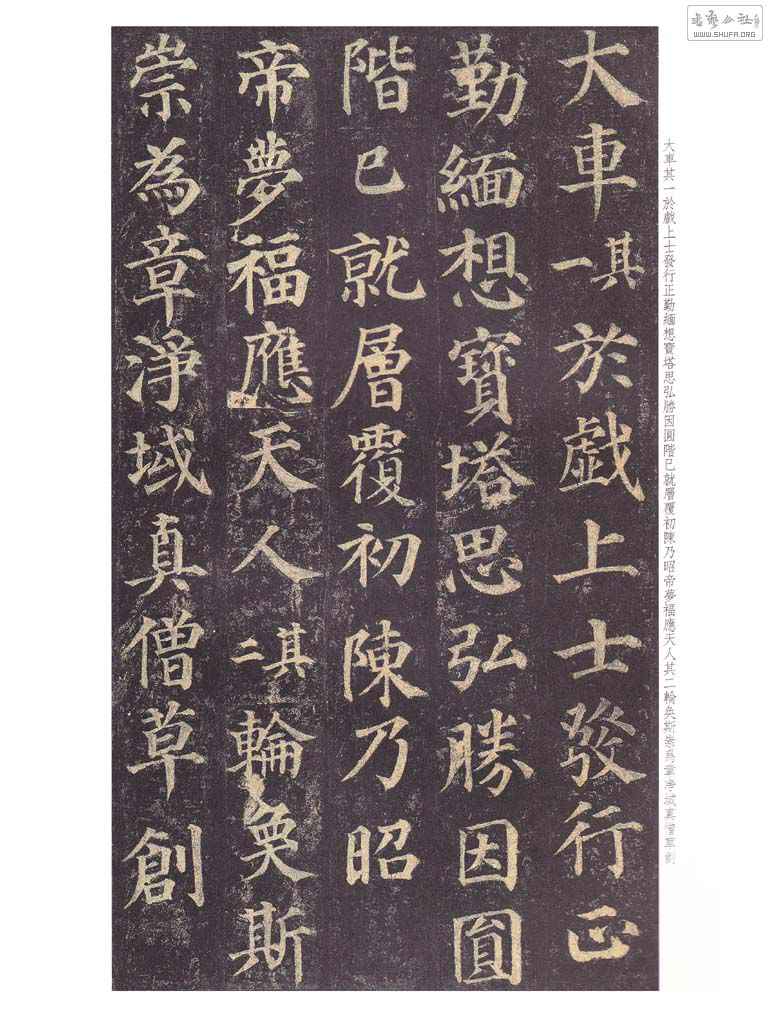 書藝公社
WWW.SHUFA.ORG
大車其一於戲上士發行正勤緬想寶塔思弘勝因圓階已就層覆初陳乃昭帝夢福應天人其二輪奐斯崇爲章净域真僧草創
大車其一於戯上士發行正
勤緬想寶塔思弘勝因圓
階已就層覆初陳乃昭
帝夢福應天人其二輪奐斯
崇為章淨域真僧草創